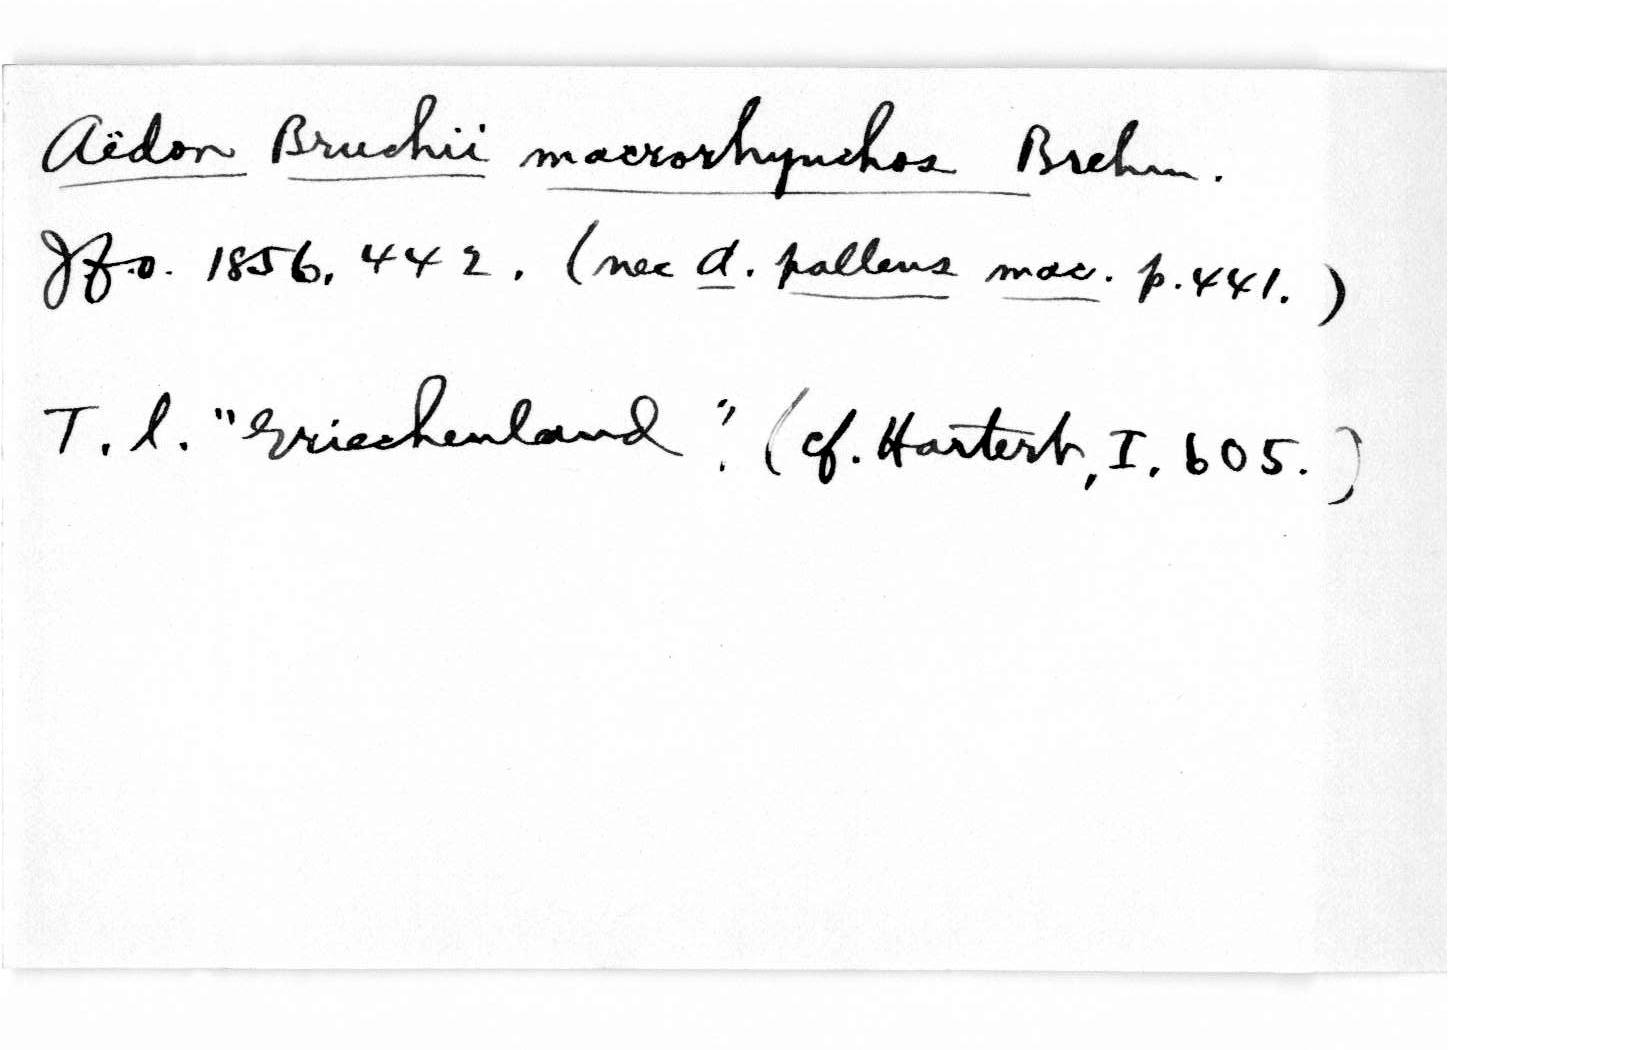 Aëdon Bruchii macrorhynchos Brehm.
Jfo. 1856, 442. (nec A. pallens mac. p. 441.)
T. l. "Griechenland". (cf. Hartert, I. 605.)